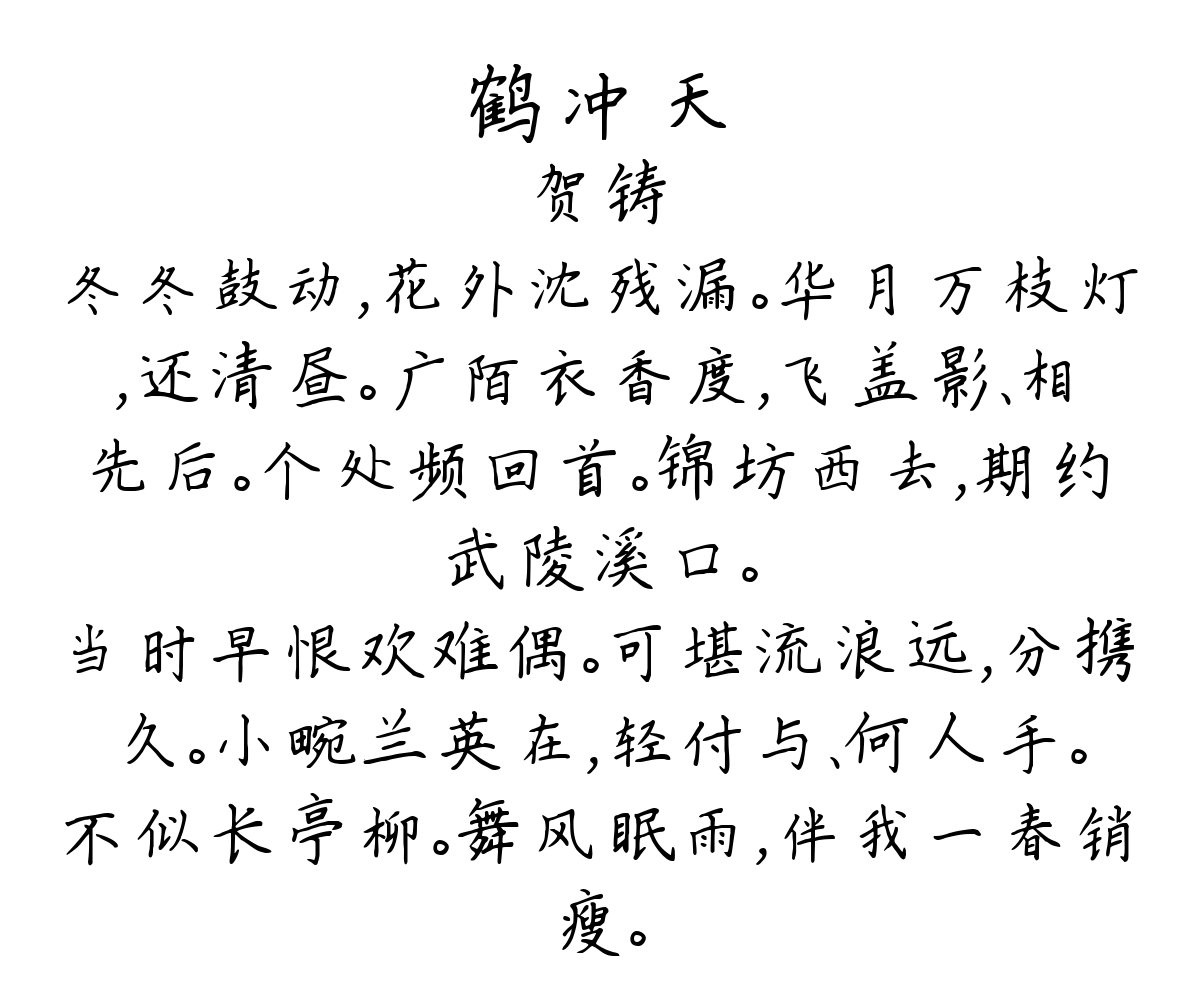 鹤冲天
贺铸
冬冬鼓动,花外沈残漏。华月万枝灯
,还清昼。广陌衣香度,飞盖影、相
先后。个处频回首。锦坊西去,期约
武陵溪口。
当时早恨欢难偶。可堪流浪远,分携
久。小畹兰英在,轻付与、何人手。
不似长亭柳。舞风眠雨,伴我一春销
瘦。